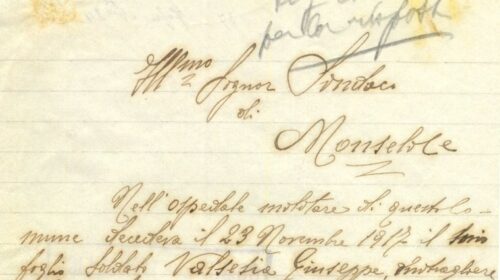 per la risposta
Ill.mo Signor Sindaco
di
Monselice
Nell'ospedale militare di questo Co-
mune decedeva il 23 Novembre 1917 il mio
figlio soldato Valsesia Giuseppe,